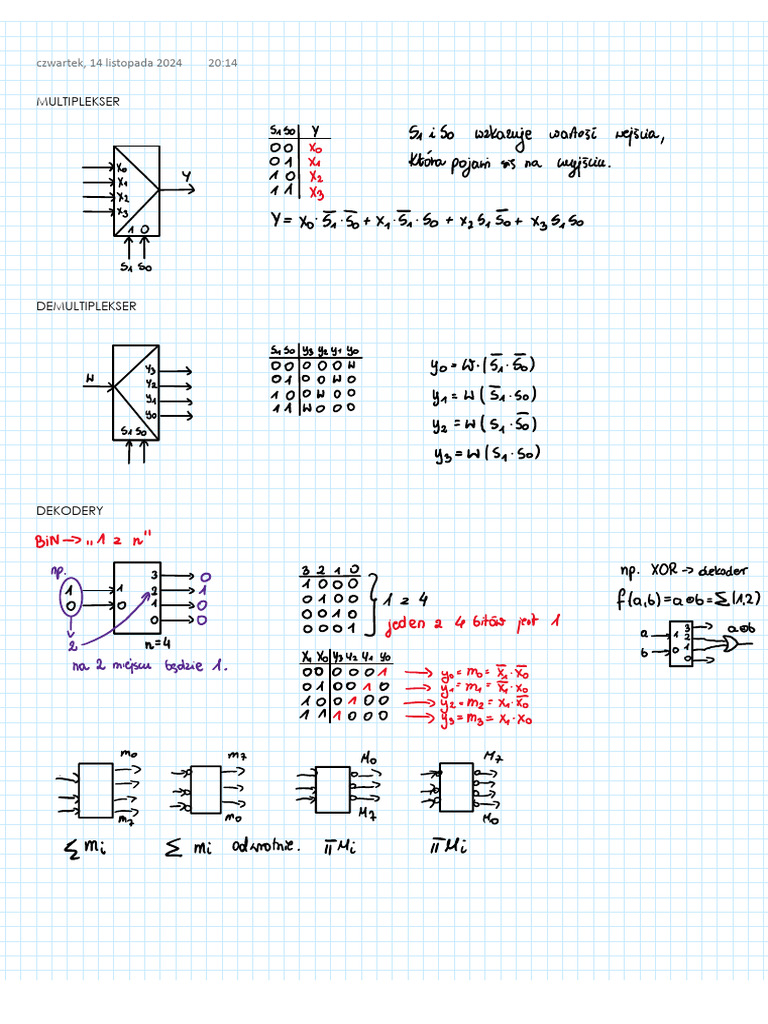 czwartek, 14 listopada 2024 20:14
MULTIPLEKSER
X0
X1
X2
X3
Y
1 0
S1 S0
S1 S0 Y
0 0 X0
0 1 X1
1 0 X2
1 1 X3
S1 i S0 wskazuje wartość wejścia,
która pojawi się na wyjściu.
Y = X0 · S̅1 · S̅0 + X1 · S̅1 · S0 + X2 S1 S̅0 + X3 S1 S0
DEMULTIPLEKSER
W
y3
y2
y1
y0
S1 S0
S1 S0 y3 y2 y1 y0
0 0 0 0 0 W
0 1 0 0 W 0
1 0 0 W 0 0
1 1 W 0 0 0
y0 = W · (S̅1 · S̅0)
y1 = W (S̅1 · S0)
y2 = W (S1 · S̅0)
y3 = W (S1 · S0)
DEKODERY
BIN → „1 z n"
np.
1 1 3 0
0 0 2 1
1 0
0 0
2 n=4
na 2 miejscu będzie 1.
3 2 1 0
1 0 0 0
0 1 0 0
0 0 1 0
0 0 0 1
1 z 4
jeden z 4 bitów jest 1
X1 X0 y3 y2 y1 y0
0 0 0 0 0 1 → y0 = m0 = X̅1 · X̅0
0 1 0 0 1 0 → y1 = m1 = X̅1 · X0
1 0 0 1 0 0 → y2 = m2 = X1 · X̅0
1 1 1 0 0 0 → y3 = m3 = X1 · X0
np. XOR → dekoder
f(a,b) = a⊕b = ∑(1,2)
a 1 3 a⊕b
2
b 0 1
0
m0 m7 M0 M7
m7 m0 M7 M0
∑ mi ∑ mi odwrotnie. ΠMi ΠMi